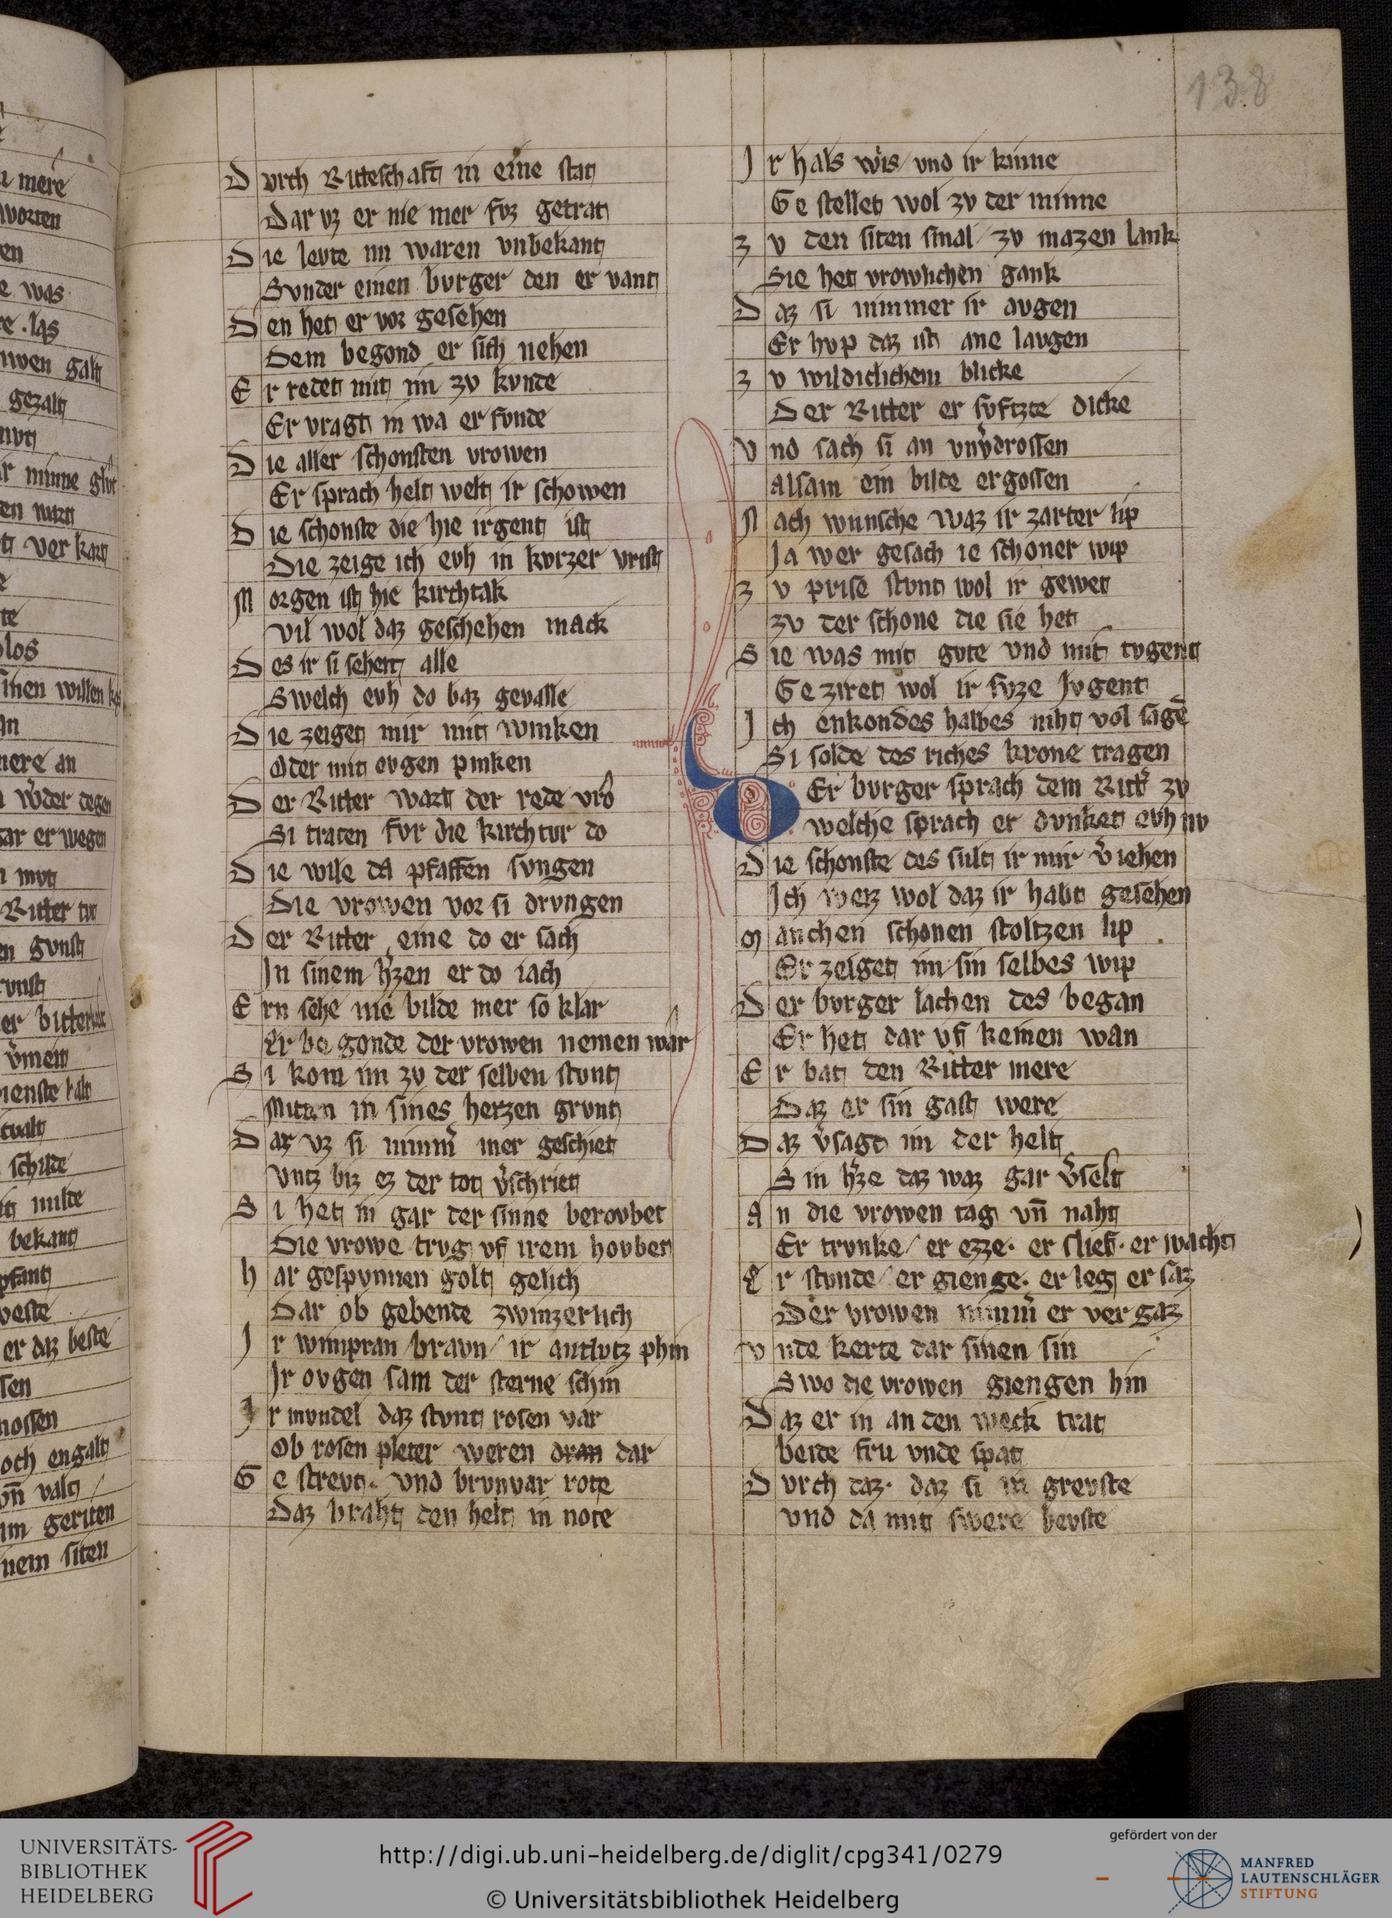 138
Dvrch Ritteschaft in eine stat
Dar vz er nie mer fvz getrat
Die levte im waren vnbekant
Svnder einen bvrger den er vant
Den het er vor gesehen
Dem begond er sich nehen
Er redet mit im zv kvnde
Er vragt in wa er fvnde
Die aller schonsten vrowen
Er sprach helt welt ir schowen
Die schonste die hie irgent ist
Die zeige ich evh in kvrzer vrist
Morgen ist hie kirchtak
Vil wol daz geschehen mack
Des ir si sehent alle
Swelch evh do baz gevalle
Die zeiget mir mit winken
Oder mit ovgen pinken
Der Ritter wart der rede vro
Si traten fvr die kirchtvr do
Die wile da pfaffen svngen
Die vrowen vor si drvngen
Der Ritter eine do er sach
In sinem h'zen er do iach
Ern sehe nie bilde mer so klar
Er begonde der vrowen nemen war
Si kom im zv der selben stvnt
Mitten in sines herzen grvnt
Daz vz si nimm' mer geschiet
Vntz biz ez der tot v'schriet
Si het in gar der sinne berovbet
Die vrowe trvg vf irem hovbet
Har gespvnnen golt gelich
Dar ob gebende zwinzerlich
Ir winpran bravn ir antlvtz phin
Ir ovgen sam der sterne schin
Ir mvndel daz stvnt rosen var
Ob rosen pleter weren dran dar
Ge strevt. vnd brvnvar rote
Daz braht den helt in note
Ir hals wis vnd ir kinne
Ge stellet wol zv der minne
Zv den siten smal zv mazen lank
Sie het vrowlichen gank
Daz si nimmer ir avgen
Er hvp daz ist ane lavgen
Zv wildiclichem blicke
Der Ritter er svftzte dicke
Vnd sach si an vnv'drossen
Alsam ein bilde ergossen
Nach wunsche waz ir zarter lip
Ja wer gesach ie schoner wip
Zv prise stvnt wol ir gewet
Zv der schone die sie het
Sie was mit gvte vnd mit tvgent
Ge ziret wol ir svze Jvgent
Ich enkondes halbes niht vol sagē
Si solde des riches krone tragen
Der bvrger sprach dem Ritt' zv
Welche sprach er dvnket evh nv
Die schonste des svlt ir mir v'iehen
Ich weiz wol daz ir habt gesehen
Manchen schonen stoltzen lip
Er zeiget im sin selbes wip
Der bvrger lachen des began
Er het dar vf keinen wan
Er bat den Ritter mere
Daz er sin gast were
Daz v'sagt im der helt
Sin h'ze daz waz gar v'selt
An die vrowen tag vn̄ naht
Er trvnke / er ezze. er slief. er wacht
Er stvnde / er gienge. er leg er saz
Der vrowen nimm' er ver gaz
Vnde kerte dar sinen sin
Swo die vrowen giengen hin
Daz er in an den weck trat
beide fru vnde spat
Dvrch daz. daz si in grvste
Vnd da mit swere bvste
UNIVERSITÄTS-
BIBLIOTHEK
HEIDELBERG
http://digi.ub.uni-heidelberg.de/diglit/cpg341/0279
© Universitätsbibliothek Heidelberg
gefördert von der
MANFRED
LAUTENSCHLÄGER
STIFTUNG